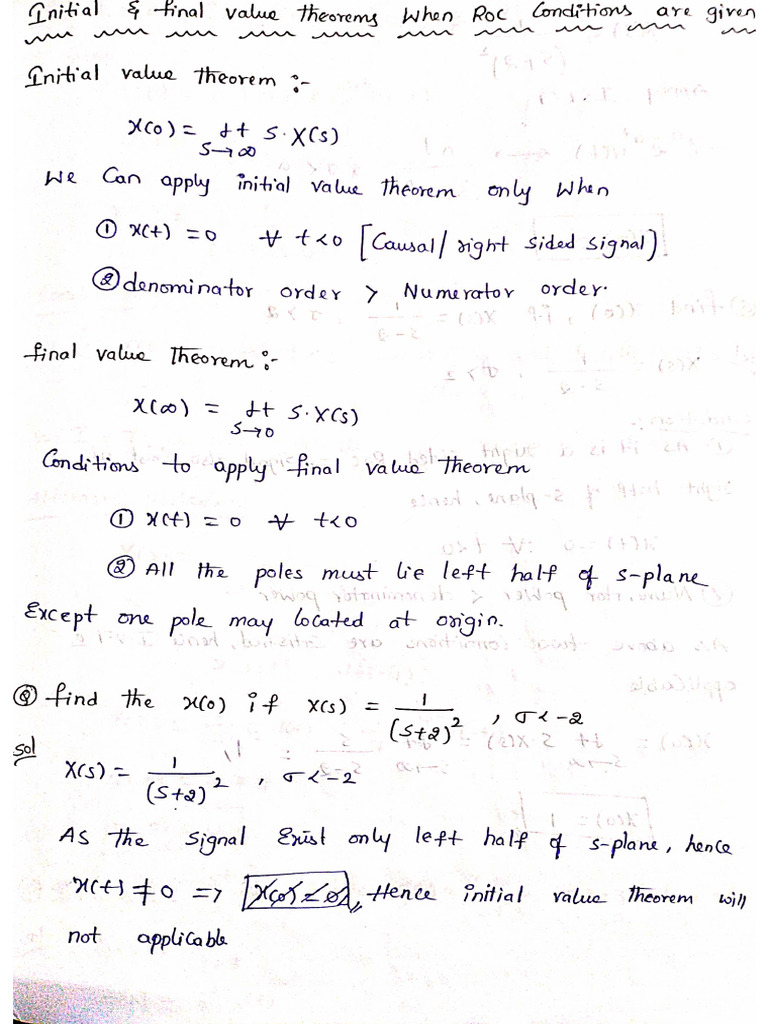 Initial & final value theorems when ROC Conditions are given
Initial value theorem :-
x(0) = lt S→∞ S·X(s)
We Can apply initial value theorem only when
① x(t) = 0 ∀ t<0 [Causal/right sided signal)
② denominator order > Numerator order.
final value Theorem :-
x(∞) = lt S→0 S·X(s)
Conditions to apply final value Theorem
① x(t) = 0 ∀ t<0
② All the poles must lie left half of s-plane
Except one pole may located at origin.
Q find the x(0) if X(s) = 1/(s+2)², σ<-2
sol
X(s) = 1/(s+2)², σ<-2
As the signal Exist only left half of s-plane, hence
x(t) ≠ 0 => Hence initial value theorem will
not applicable